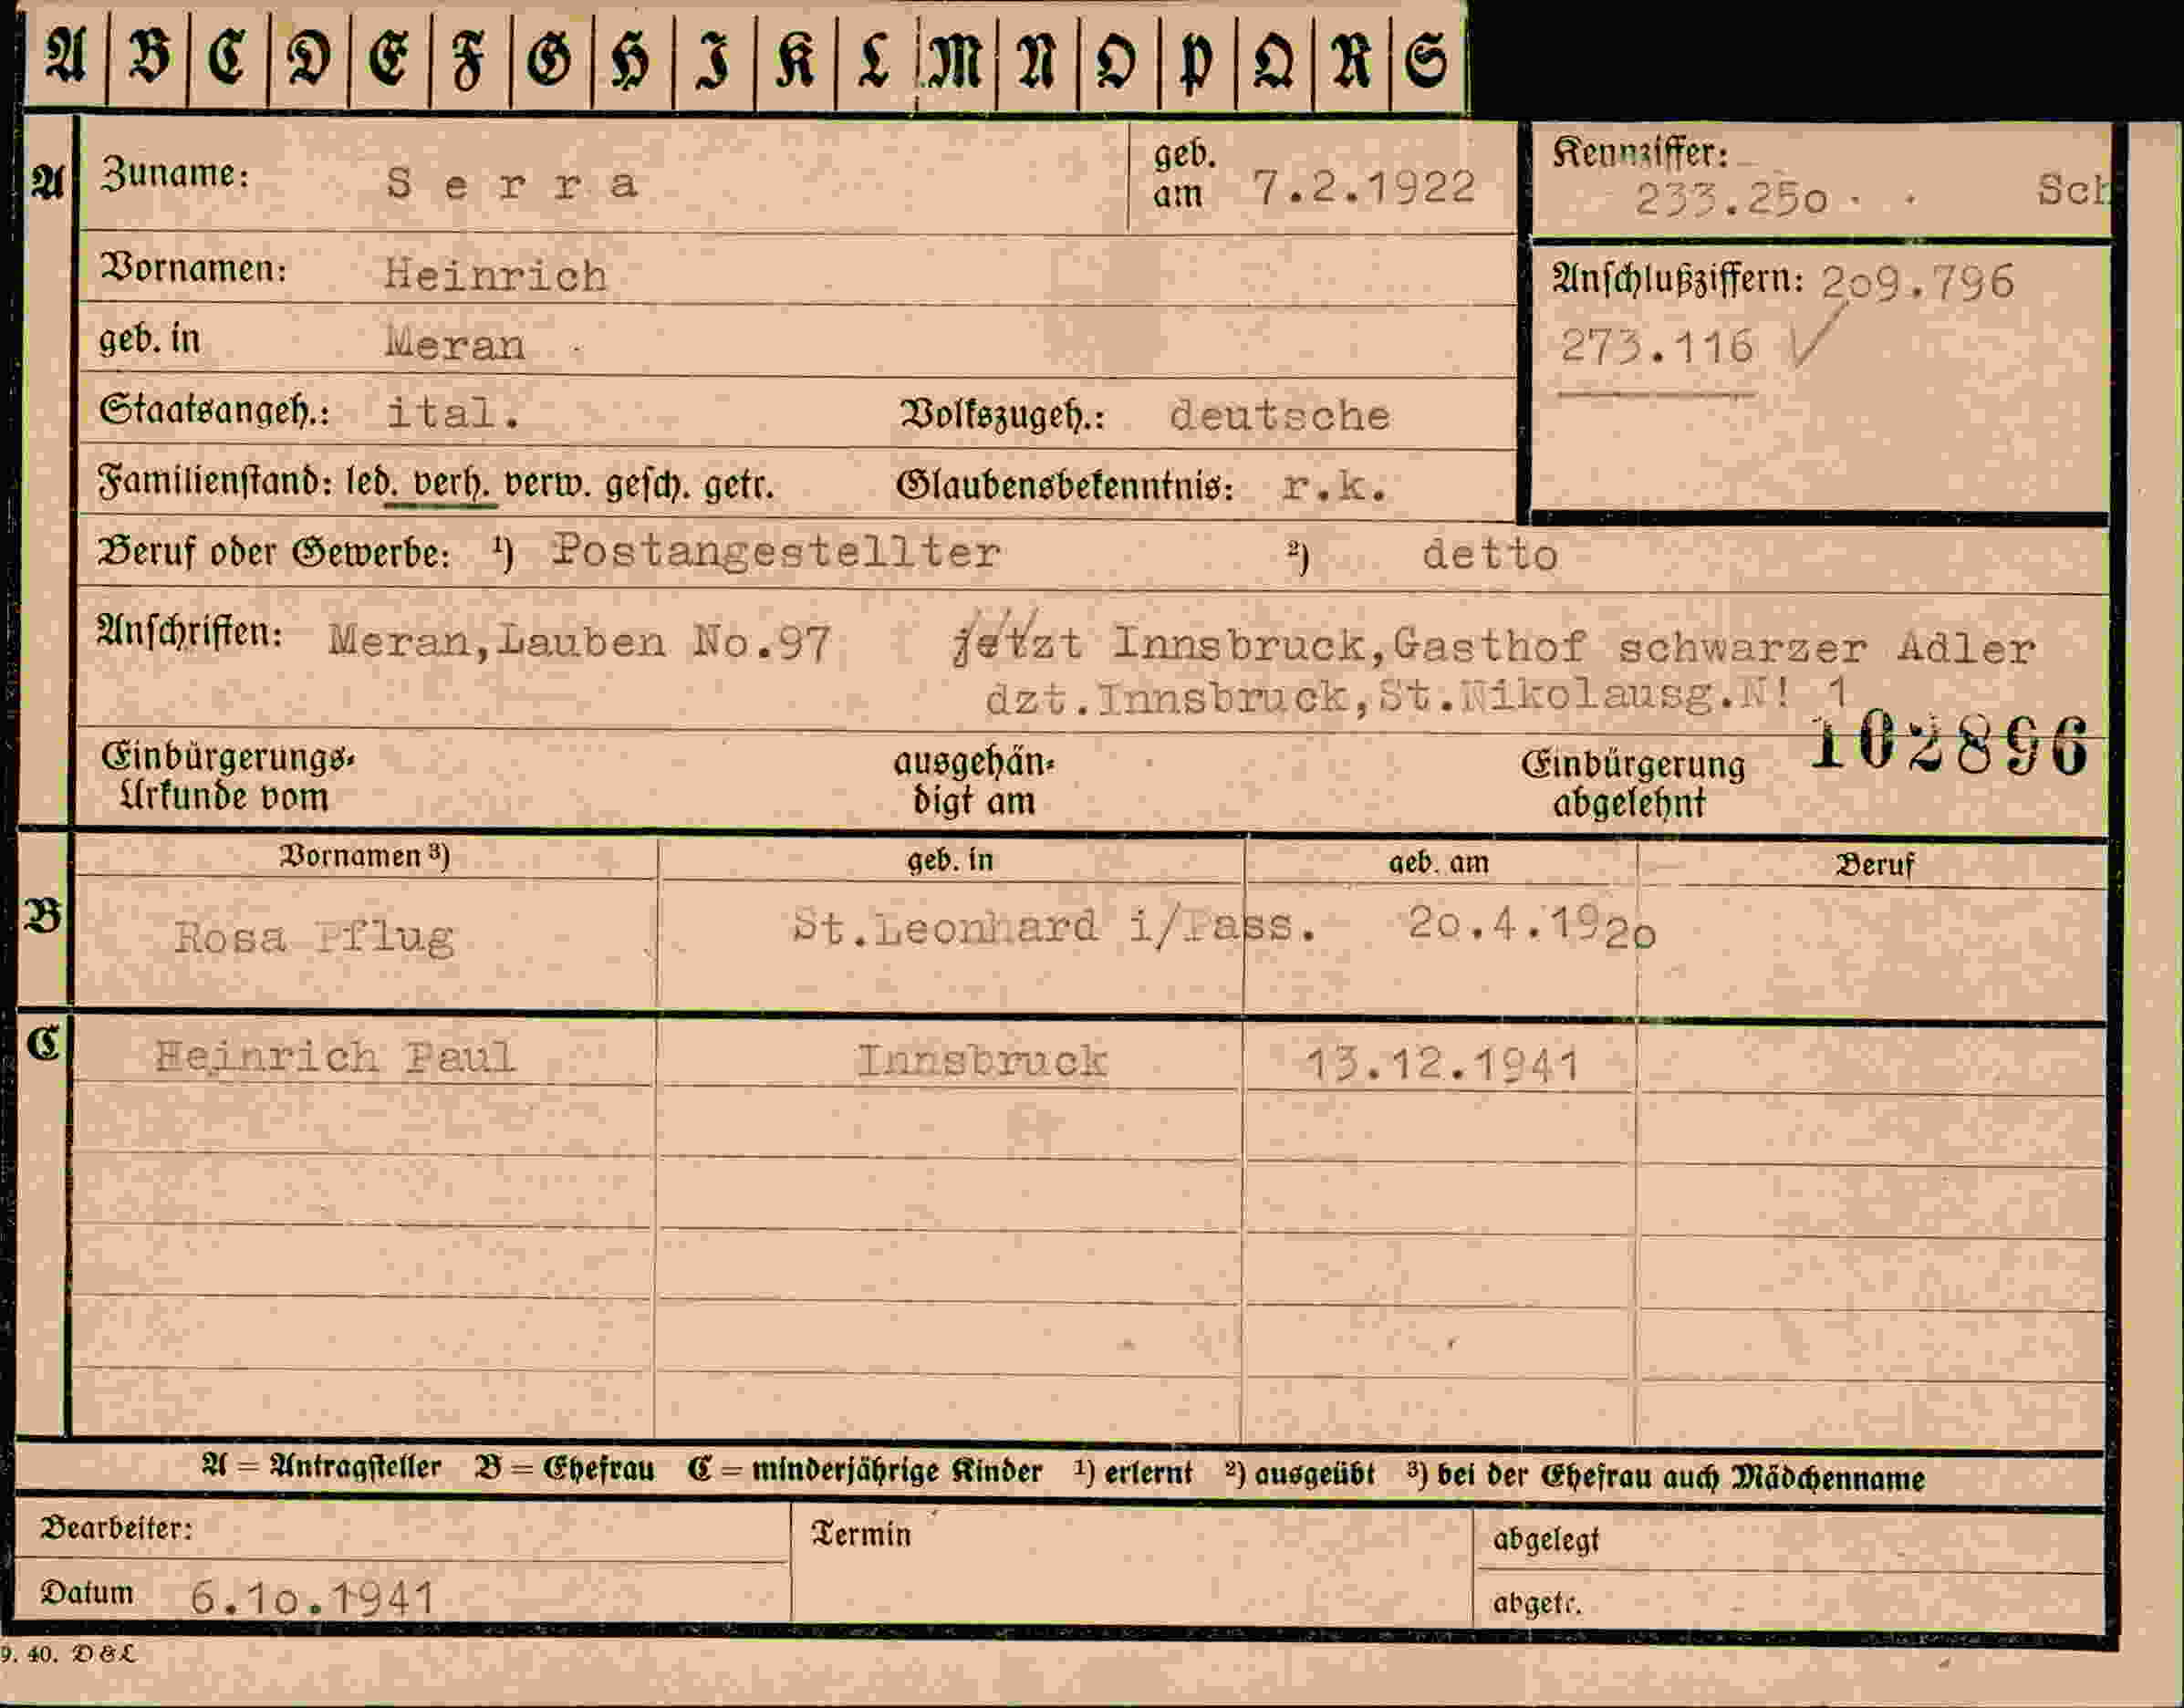 A B C D E F G H I K L M N O P Q R S
A Zuname: Serra geb. am 7.2.1922 Kennziffer: 233.250 Sch
Vornamen: Heinrich Anschlußziffern: 209.796
geb. in Meran 273.116 ✓
Staatsangeh.: ital. Volkszugeh.: deutsche
Familienstand: led. verh. verw. gesch. getr. Glaubensbekenntnis: r.k.
Beruf oder Gewerbe: ¹) Postangestellter ²) detto
Anschriften: Meran,Lauben No.97 jetzt Innsbruck,Gasthof schwarzer Adler
dzt.Innsbruck,St.Nikolausg.N! 1
102896
Einbürgerungs- ausgehän- Einbürgerung
Urkunde vom digt am abgelehnt
Vornamen ³) geb. in geb. am Beruf
B Rosa Pflug St.Leonhard i/Pass. 20.4.1920
C Heinrich Paul Innsbruck 13.12.1941
A = Antragsteller B = Ehefrau C = minderjährige Kinder ¹) erlernt ²) ausgeübt ³) bei der Ehefrau auch Mädchenname
Bearbeiter: Termin abgelegt
Datum 6.10.1941 abgetr.
9. 40. D & L